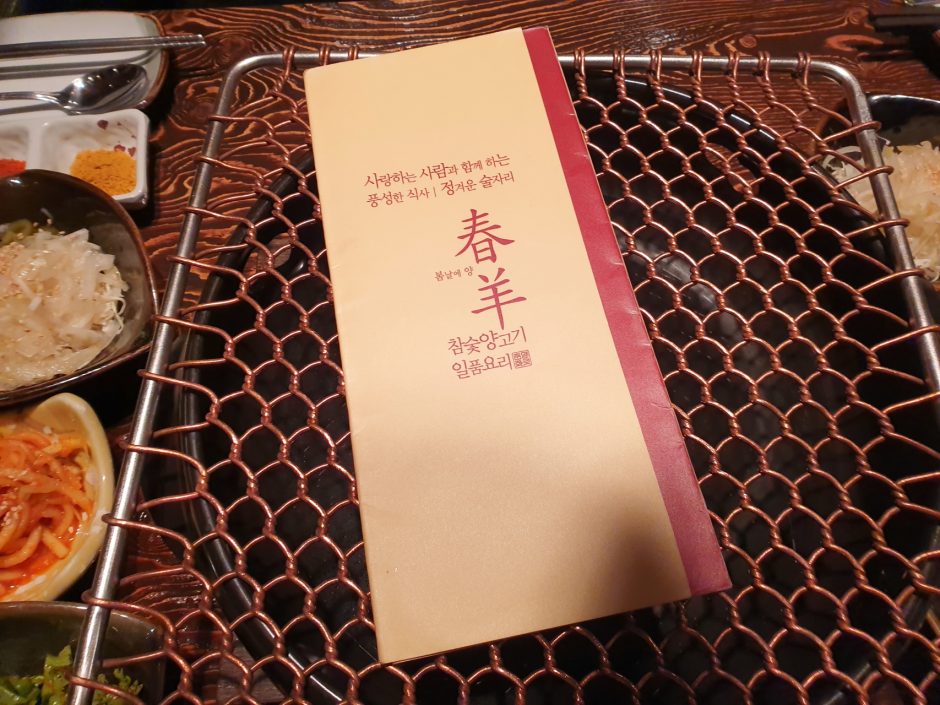 사랑하는 사람과 함께 하는
풍성한 식사 | 정겨운 술자리
春
봄날에 양
羊
참숯양고기
일품요리